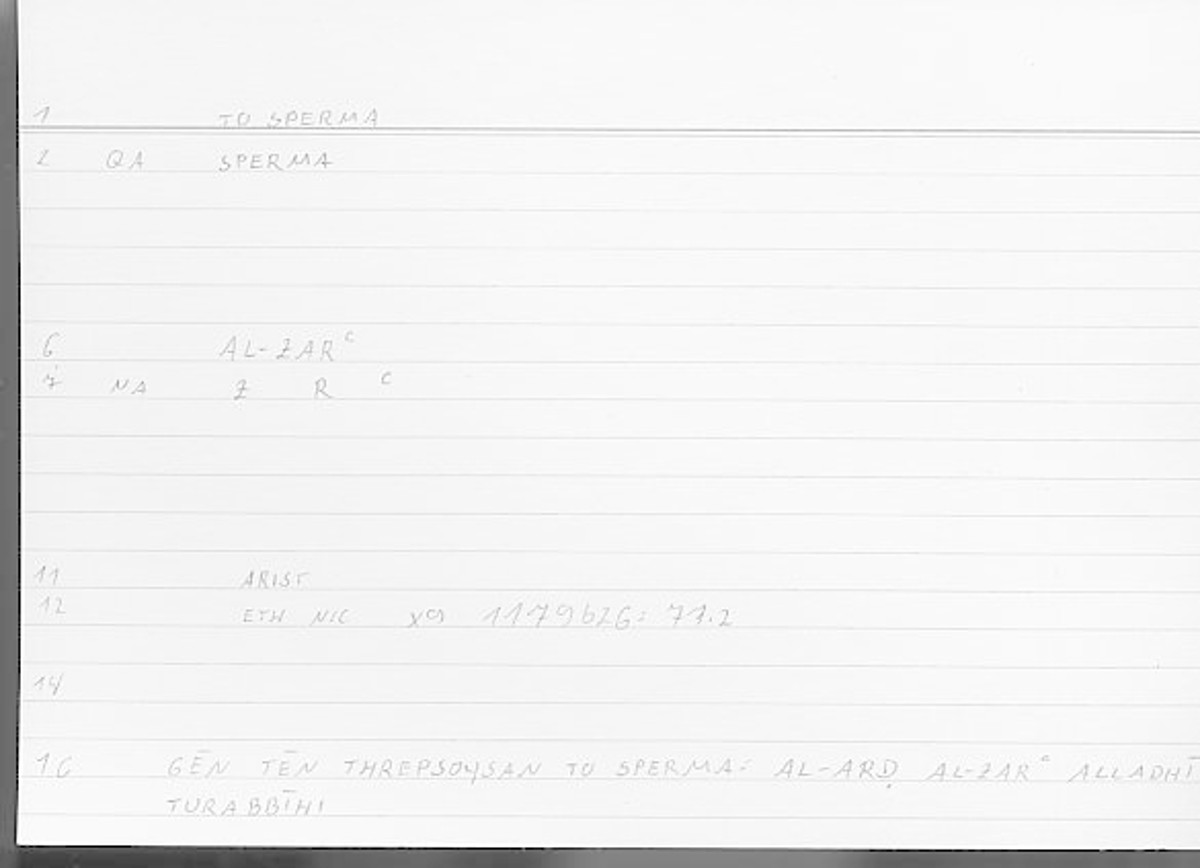 1 TO SPERMA
2 QA SPERMA
6 AL-ZARᶜ
7 NA Z R ᶜ
11 ARIST
12 ETH NIC X9 1179b26: 77.2
14
16 GĒN TĒN THREPSOYSAN TO SPERMA: AL-ARḌ AL-ZARᶜ ALLADHĪ
TURABBĪHI